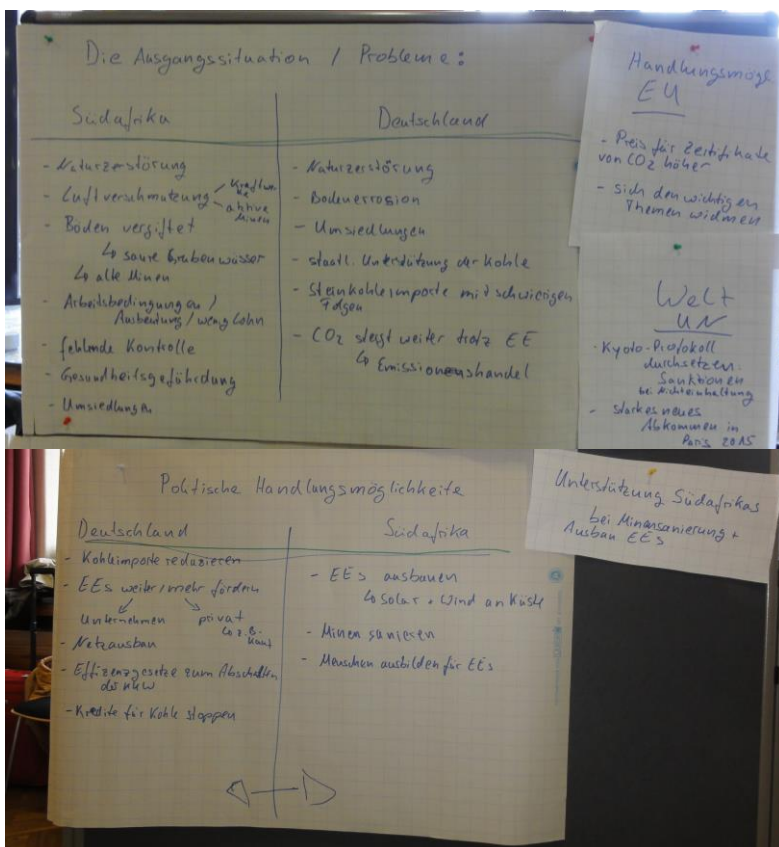 Die Ausgangssituation / Probleme:
Südafrika
- Naturzerstörung
- Luftverschmutzung
Kraftwerke
aktive
Minen
- Böden vergiftet
↳ saure Grubenwässer
↳ alte Minen
- Arbeitsbedingungen /
Ausbeutung / wenig Lohn
- fehlende Kontrolle
- Gesundheitsgefährdung
- Umsiedlungen
Deutschland
- Naturzerstörung
- Bodenerrosion
- Umsiedlungen
- staatl. Unterstützung der Kohle
- Steinkohleimporte mit schwierigen
Folgen
- CO2 steigt weiter trotz EE
↳ Emissionenshandel
Handlungsmögl
EU
- Preis für Zertifikate
von CO2 höher
- sich den wichtigen
Themen widmen
Welt
UN
- Kyoto-Protokoll
durchsetzen.
Sanktionen
bei Nichteinhaltung
- starkes neues
Abkommen in
Paris 2015
Politische Handlungsmöglichkeite
Deutschland
- Kohleimporte reduzieren
- EEs weiter/mehr fördern
Unternehmen privat
↳ z.B.
- Netzausbau
- Effizenzgesetze zum Abschalten
der KKW
- Kredite für Kohle stoppen
Südafrika
- EEs ausbauen
↳ Solar + Wind an Küste
- Minen sanieren
- Menschen ausbilden für EEs
Unterstützung Südafrikas
bei Minensanierung +
Ausbau EEs